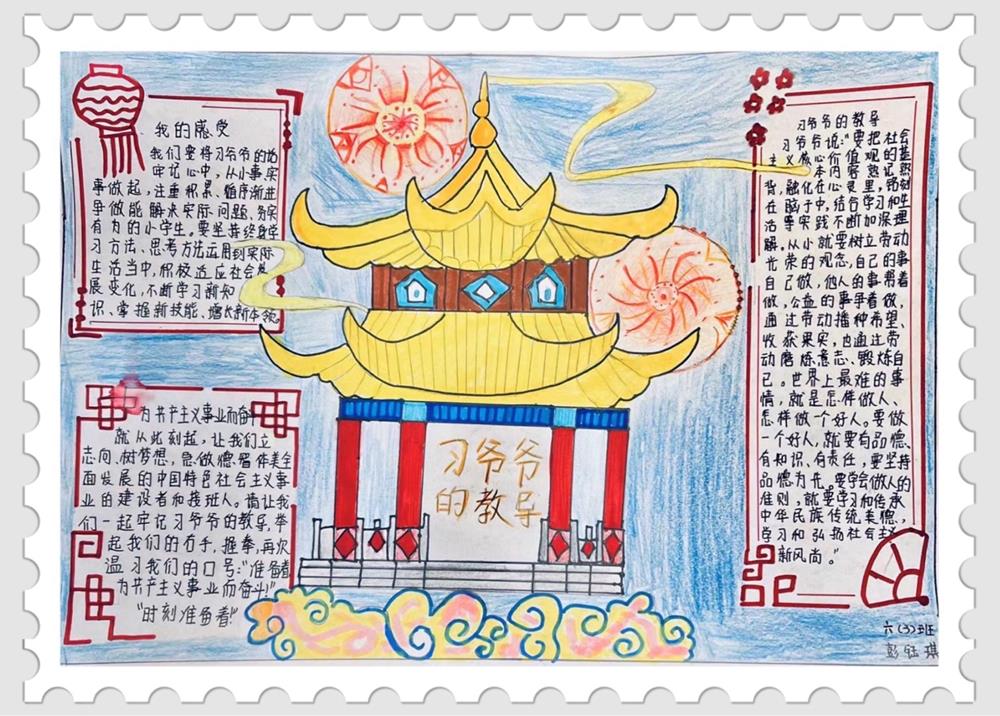 我的感受
我们要将习爷爷的话
牢记心中,从小事、实
事做起,注重积累、循序渐进
争做能解决实际问题、务实
有为的小学生。要坚持终身学
习方法、思考方法运用到实际
生活当中,积极适应社会发
展变化,不断学习新知
识、掌握新技能、增长新本领
为共产主义事业而奋斗
就从此刻起,让我们立
志向、树梦想,急做德智体美全
面发展的中国特色社会主义事
业的建设者和接班人。请让我
们一起牢记习爷爷的教导,举
起我们的右手,握拳,再次
温习我们的口号:“准备着
为共产主义事业而奋斗!”
“时刻准备着!”
习爷爷
的教导
习爷爷的教导
习爷爷说:“要把社会
主义核心价值观的基
本内容熟记熟
背,融化在心灵里,铭刻
在脑子中,结合学习和生
活等实践不断加深理
解。从小就要树立劳动
光荣的观念,自己的事
自己做,他人的事帮着
做,公益的事争着做,
通过劳动播种希望、
收获果实,也通过劳
动磨炼意志、锻炼自
己。世界上最难的事
情,就是怎样做人、
怎样做一个好人。要做
一个好人,就要有品德、
有知识、有责任,要坚持
品德为先。要学会做人的
准则,就要学习和传承
中华民族传统美德,
学习和弘扬社会主义
新风尚。”
六(3)班
彭钰琪